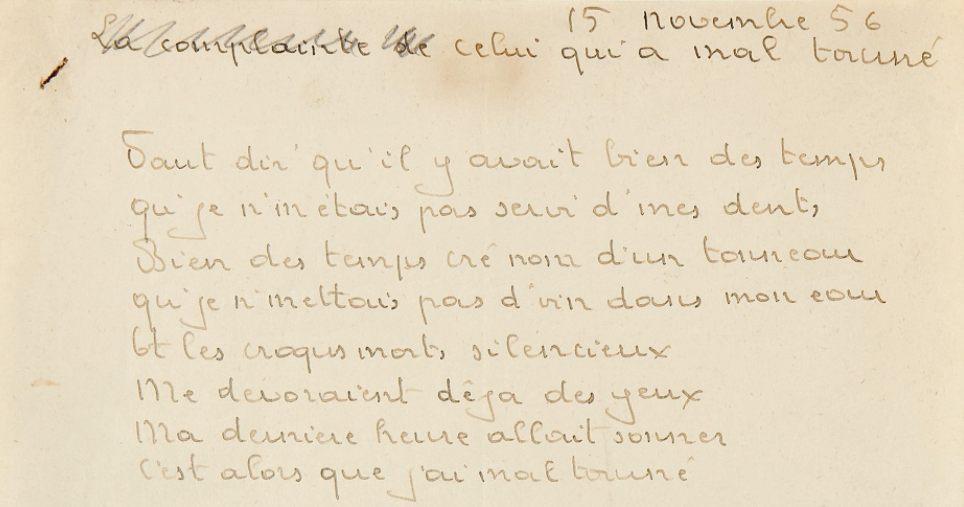 15 novembre 56
La complainte de celui qui a mal tourné
Faut dir' qu'il y avait bien des temps
qu'je n'm'étais pas servi d'mes dents
Bien des temps cré nom d'un tonneau
qu'je n'mettais pas d'vin dans mon eau
Et les croqu'morts silencieux
Me devoraient déja des yeux
Ma dernière heure allait sonner
C'est alors que j'ai mal tourné